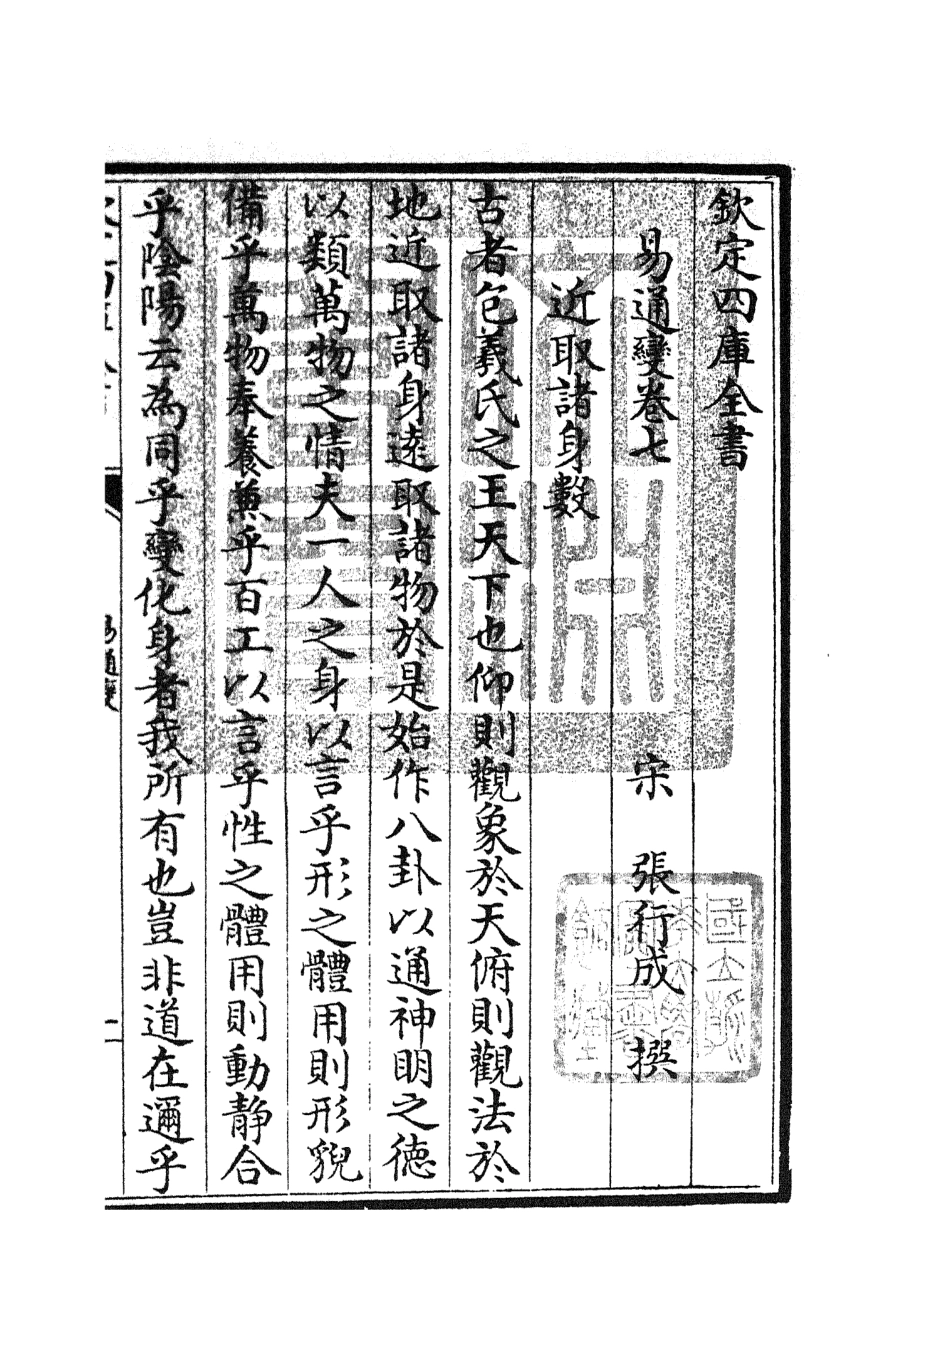 欽定四庫全書
易通變卷七　宋　張行成　撰
近取諸身數
古者包羲氏之王天下也仰則觀象於天俯則觀法於
地近取諸身遠取諸物於是始作八卦以通神明之德
以類萬物之情夫一人之身以言乎形之體用則形貌
備乎萬物奉養兼乎百工以言乎性之體用則動静合
乎陰陽云為同乎變化身者我所有也豈非道在邇乎
易通變